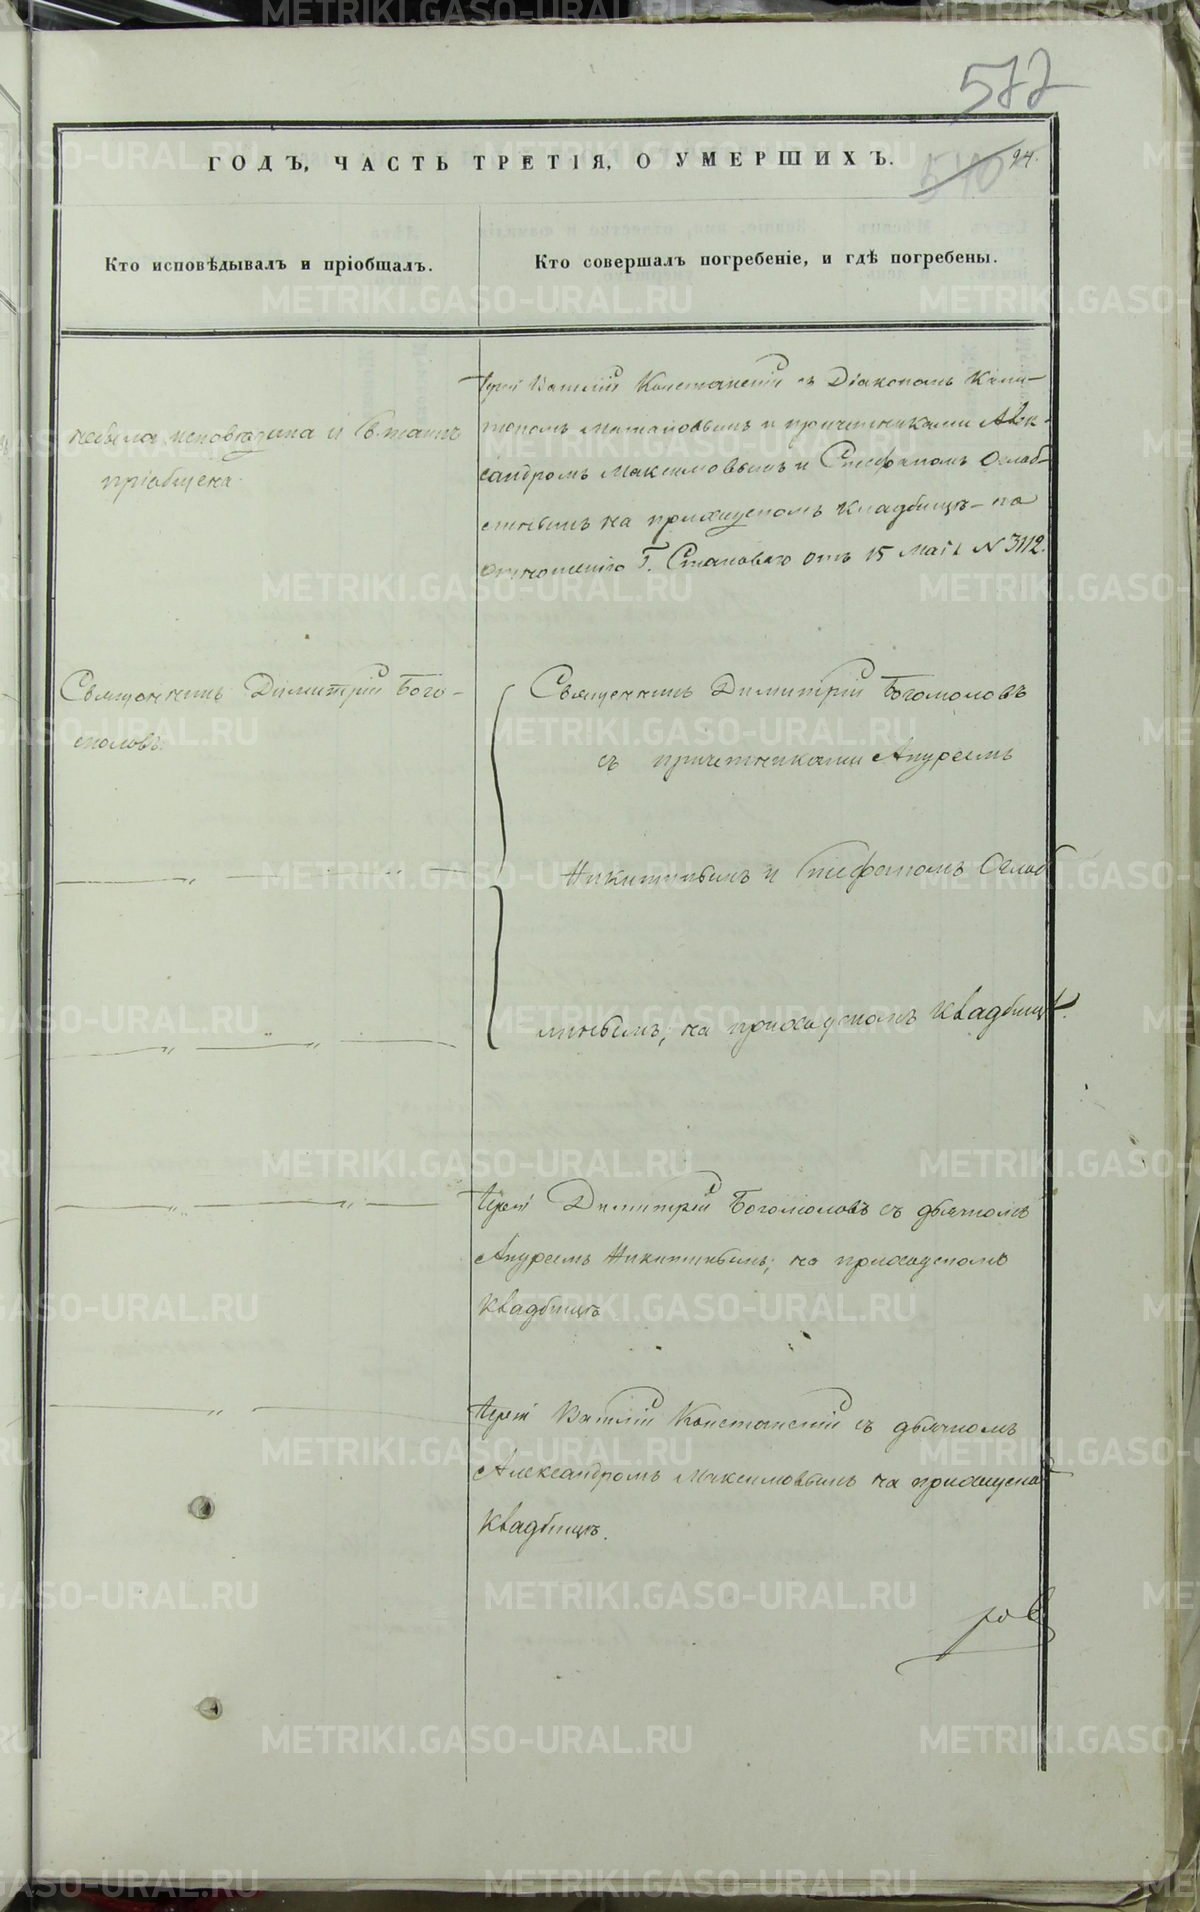 577
ГОДЪ, ЧАСТЬ ТРЕТІЯ, О УМЕРШИХЪ.
540 94.
Кто исповѣдывалъ и пріобщалъ.
Кто совершалъ погребеніе, и гдѣ погребены.
небыла исповѣдана и св. таинъ
пріобщена.
Іерей Василій Констанскій съ Діакономъ Капи-
тономъ и причетниками Алек-
сандромъ Максимовымъ и Стефаномъ Оглоб-
линымъ на приходскомъ кладбищѣ - по
отношенію Г. Становаго отъ 15 Маія N 3112.
Священникъ Димитрій Бого-
моловъ.
Священникъ Димитрій Богомоловъ
съ причетниками Андреемъ
Никитинымъ и Стефаномъ Оглоб
линымъ, на приходскомъ кладбищѣ.
Іерей Димитрій Богомоловъ съ дьячкомъ
Андреемъ Никитинымъ; на приходскомъ
кладбищѣ
Іерей Василій Констанскій съ дьячкомъ
Александромъ Максимовымъ на приходском
кладбищѣ.
ров
METRIKI.GASO-URAL.RU